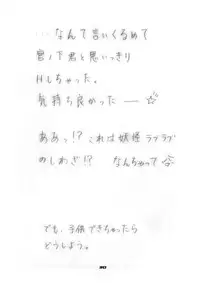 …なんて言いくるめて
宮ノ下君と思いっきり
Hしちゃった。
気持ち良かったー☆
ああっ!?これは妖怪ラブラブ
のしわざ!?なんちゃって☆
でも、子供できちゃったら
どうしよう。